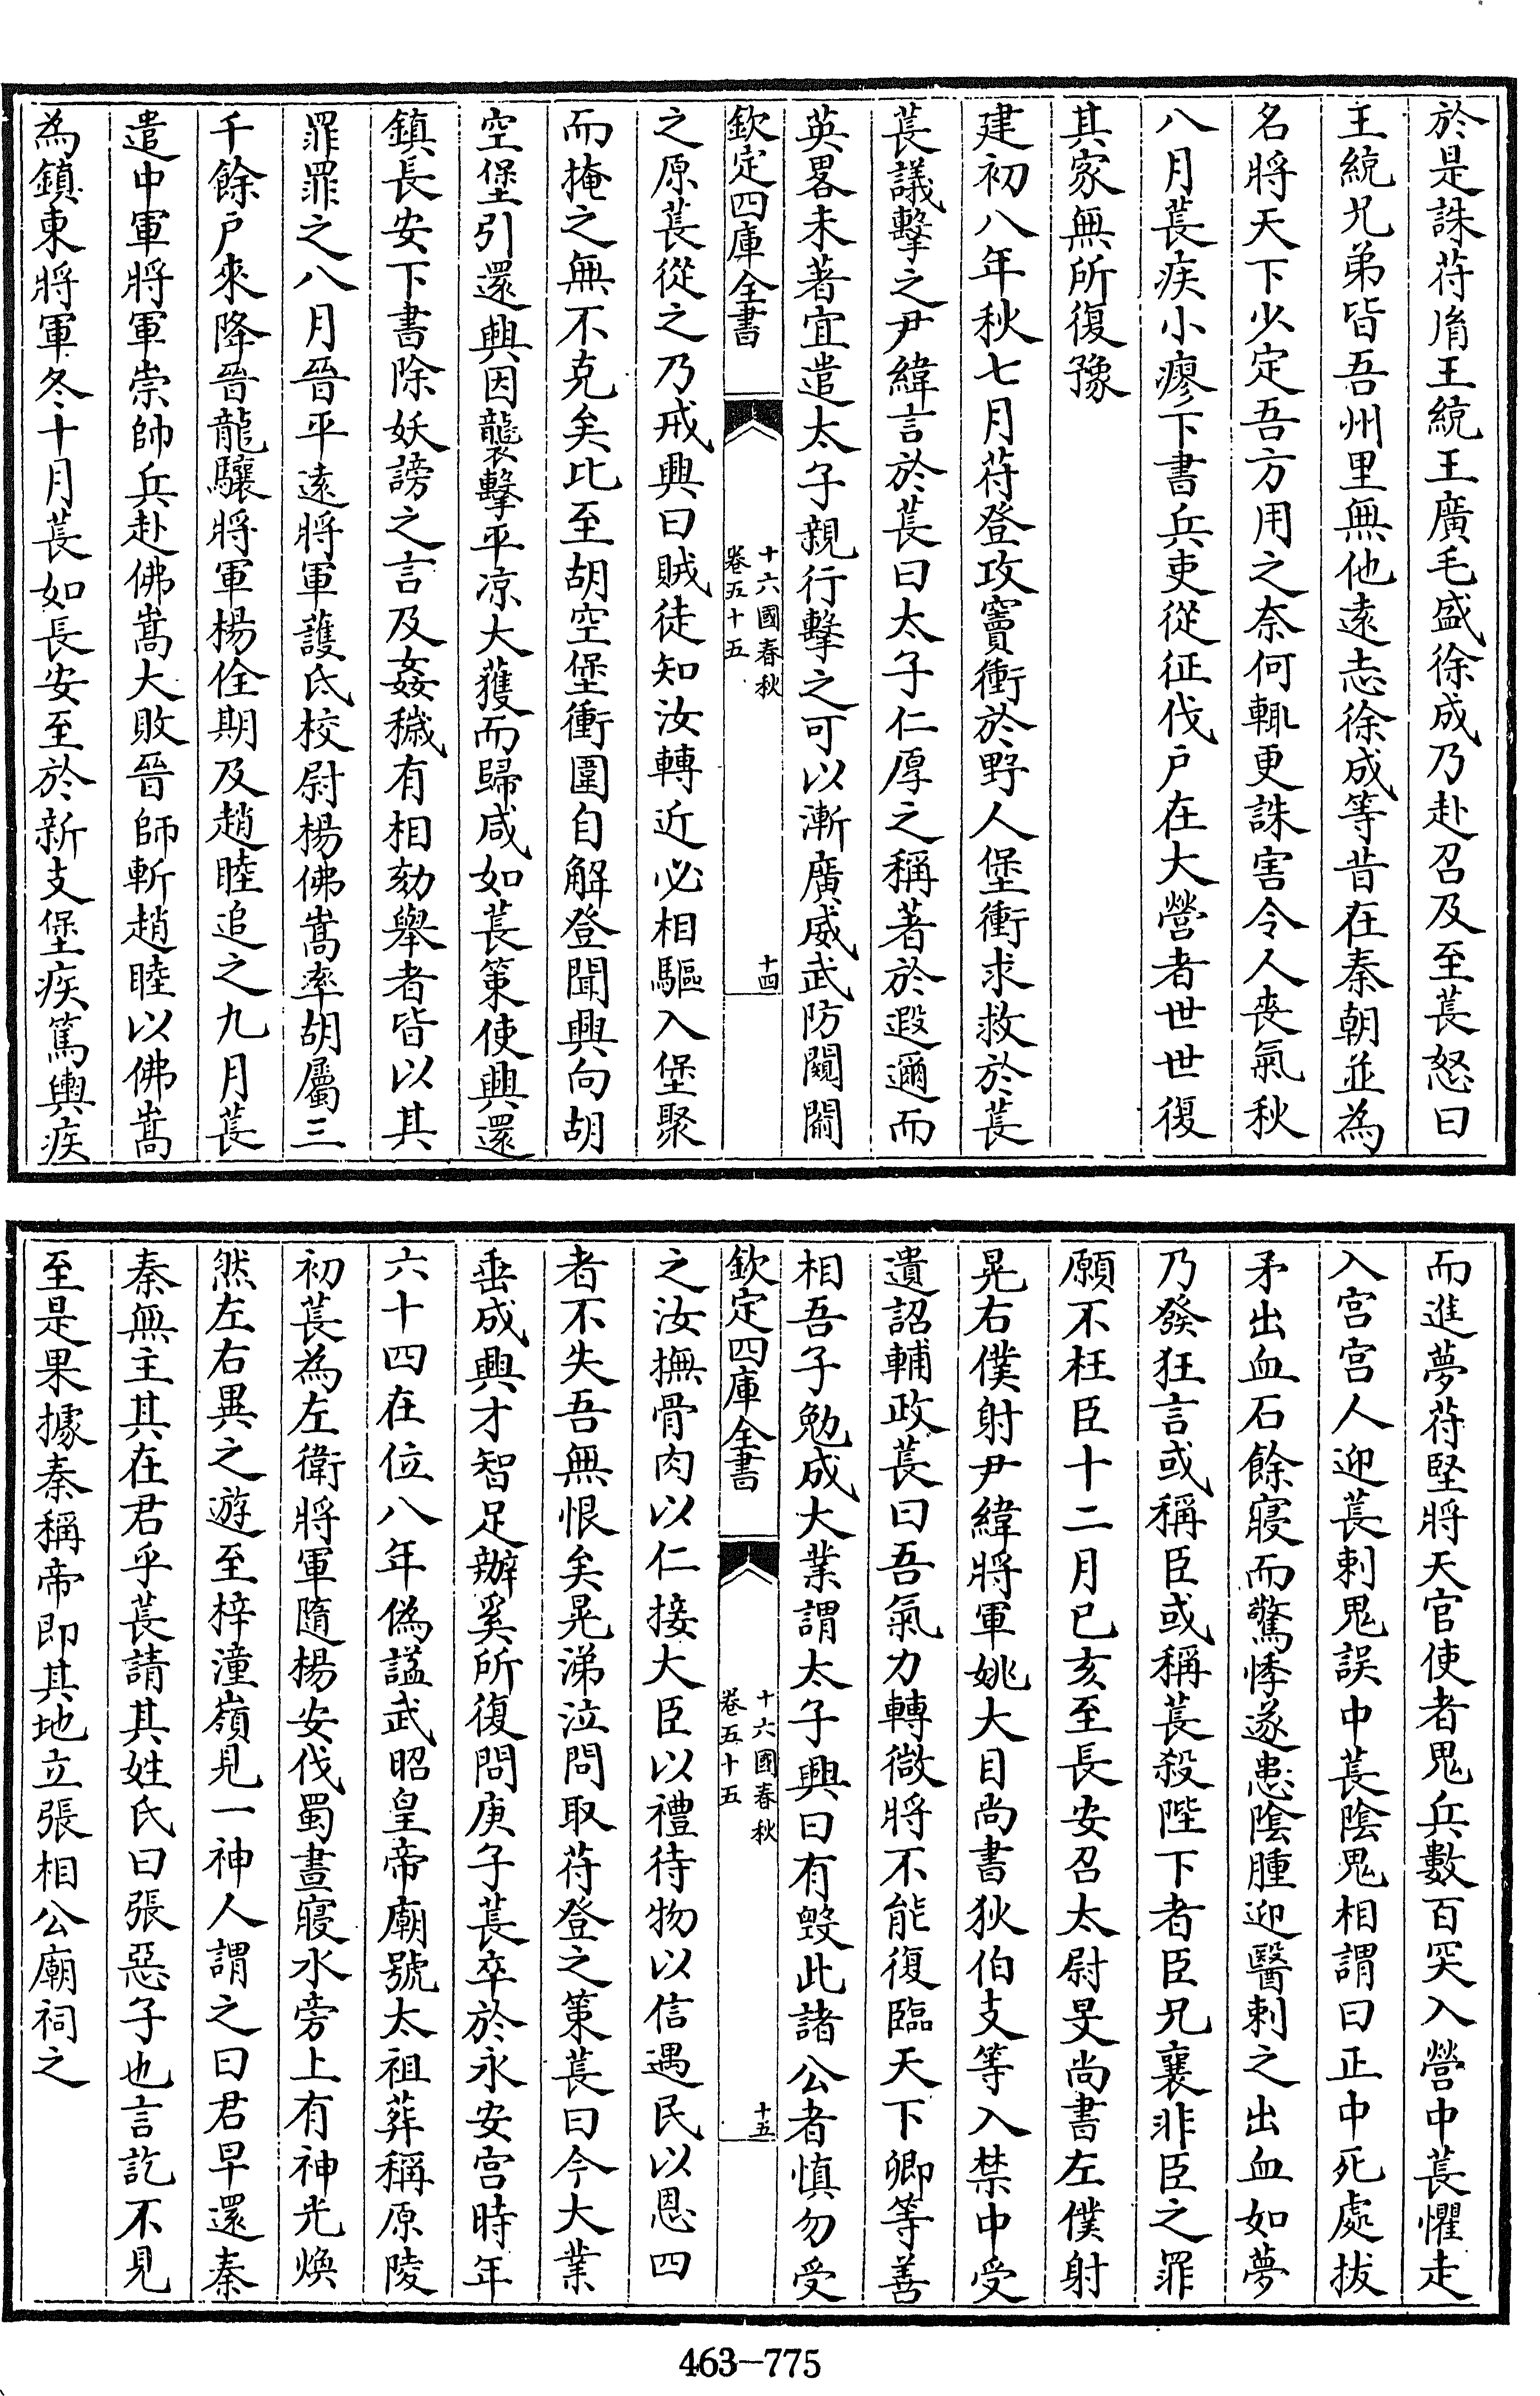 於是誅苻胤王統王廣毛盛徐成乃赴召及至萇怒曰
王統兄弟皆吾州里無他遠志徐成等昔在秦朝並為
名將天下少定吾方用之奈何輒更誅害令人喪氣秋
八月萇疾小瘳下書兵吏從征伐戶在大營者世世復
其家無所復豫
建初八年秋七月苻登攻竇衝於野人堡衝求救於萇
萇議擊之尹緯言於萇曰太子仁厚之稱著於遐邇而
英畧未著宜遣太子親行擊之可以漸廣威武防闚闟
欽定四庫全書
十六國春秋
卷五十五
十四
之原萇從之乃戒興曰賊徒知汝轉近必相驅入堡聚
而掩之無不克矣比至胡空堡衝圍自解登聞興向胡
空堡引還興因襲擊平凉大獲而歸咸如萇策使興還
鎮長安下書除妖謗之言及姦穢有相劾舉者皆以其
罪罪之八月晉平遠將軍護氐校尉楊佛嵩率胡屬三
千餘戶來降晉龍驤將軍楊佺期及趙睦追之九月萇
遣中軍將軍崇帥兵赴佛嵩大敗晉師斬趙睦以佛嵩
為鎮東將軍冬十月萇如長安至於新支堡疾篤輿疾
而進夢苻堅將天官使者鬼兵數百突入營中萇懼走
入宫宫人迎萇刺鬼誤中萇陰鬼相謂曰正中死處拔
矛出血石餘寢而驚悸遂患陰腫迎醫刺之出血如夢
乃發狂言或稱臣或稱萇殺陛下者臣兄襄非臣之罪
願不枉臣十二月已亥至長安召太尉旻尚書左僕射
晃右僕射尹緯將軍姚大目尚書狄伯支等入禁中受
遺詔輔政萇曰吾氣力轉微將不能復臨天下卿等善
相吾子勉成大業謂太子興曰有毀此諸公者慎勿受
欽定四庫全書
十六國春秋
卷五十五
十五
之汝撫骨肉以仁接大臣以禮待物以信遇民以恩四
者不失吾無恨矣晃涕泣問取苻登之策萇曰今大業
垂成興才智足辦奚所復問庚子萇卒於永安宫時年
六十四在位八年偽諡武昭皇帝廟號太祖葬稱原陵
初萇為左衛將軍隨楊安伐蜀晝寢水旁上有神光煥
然左右異之遊至梓潼嶺見一神人謂之曰君早還秦
秦無主其在君乎萇請其姓氏曰張惡子也言訖不見
至是果據秦稱帝即其地立張相公廟祠之
463-775